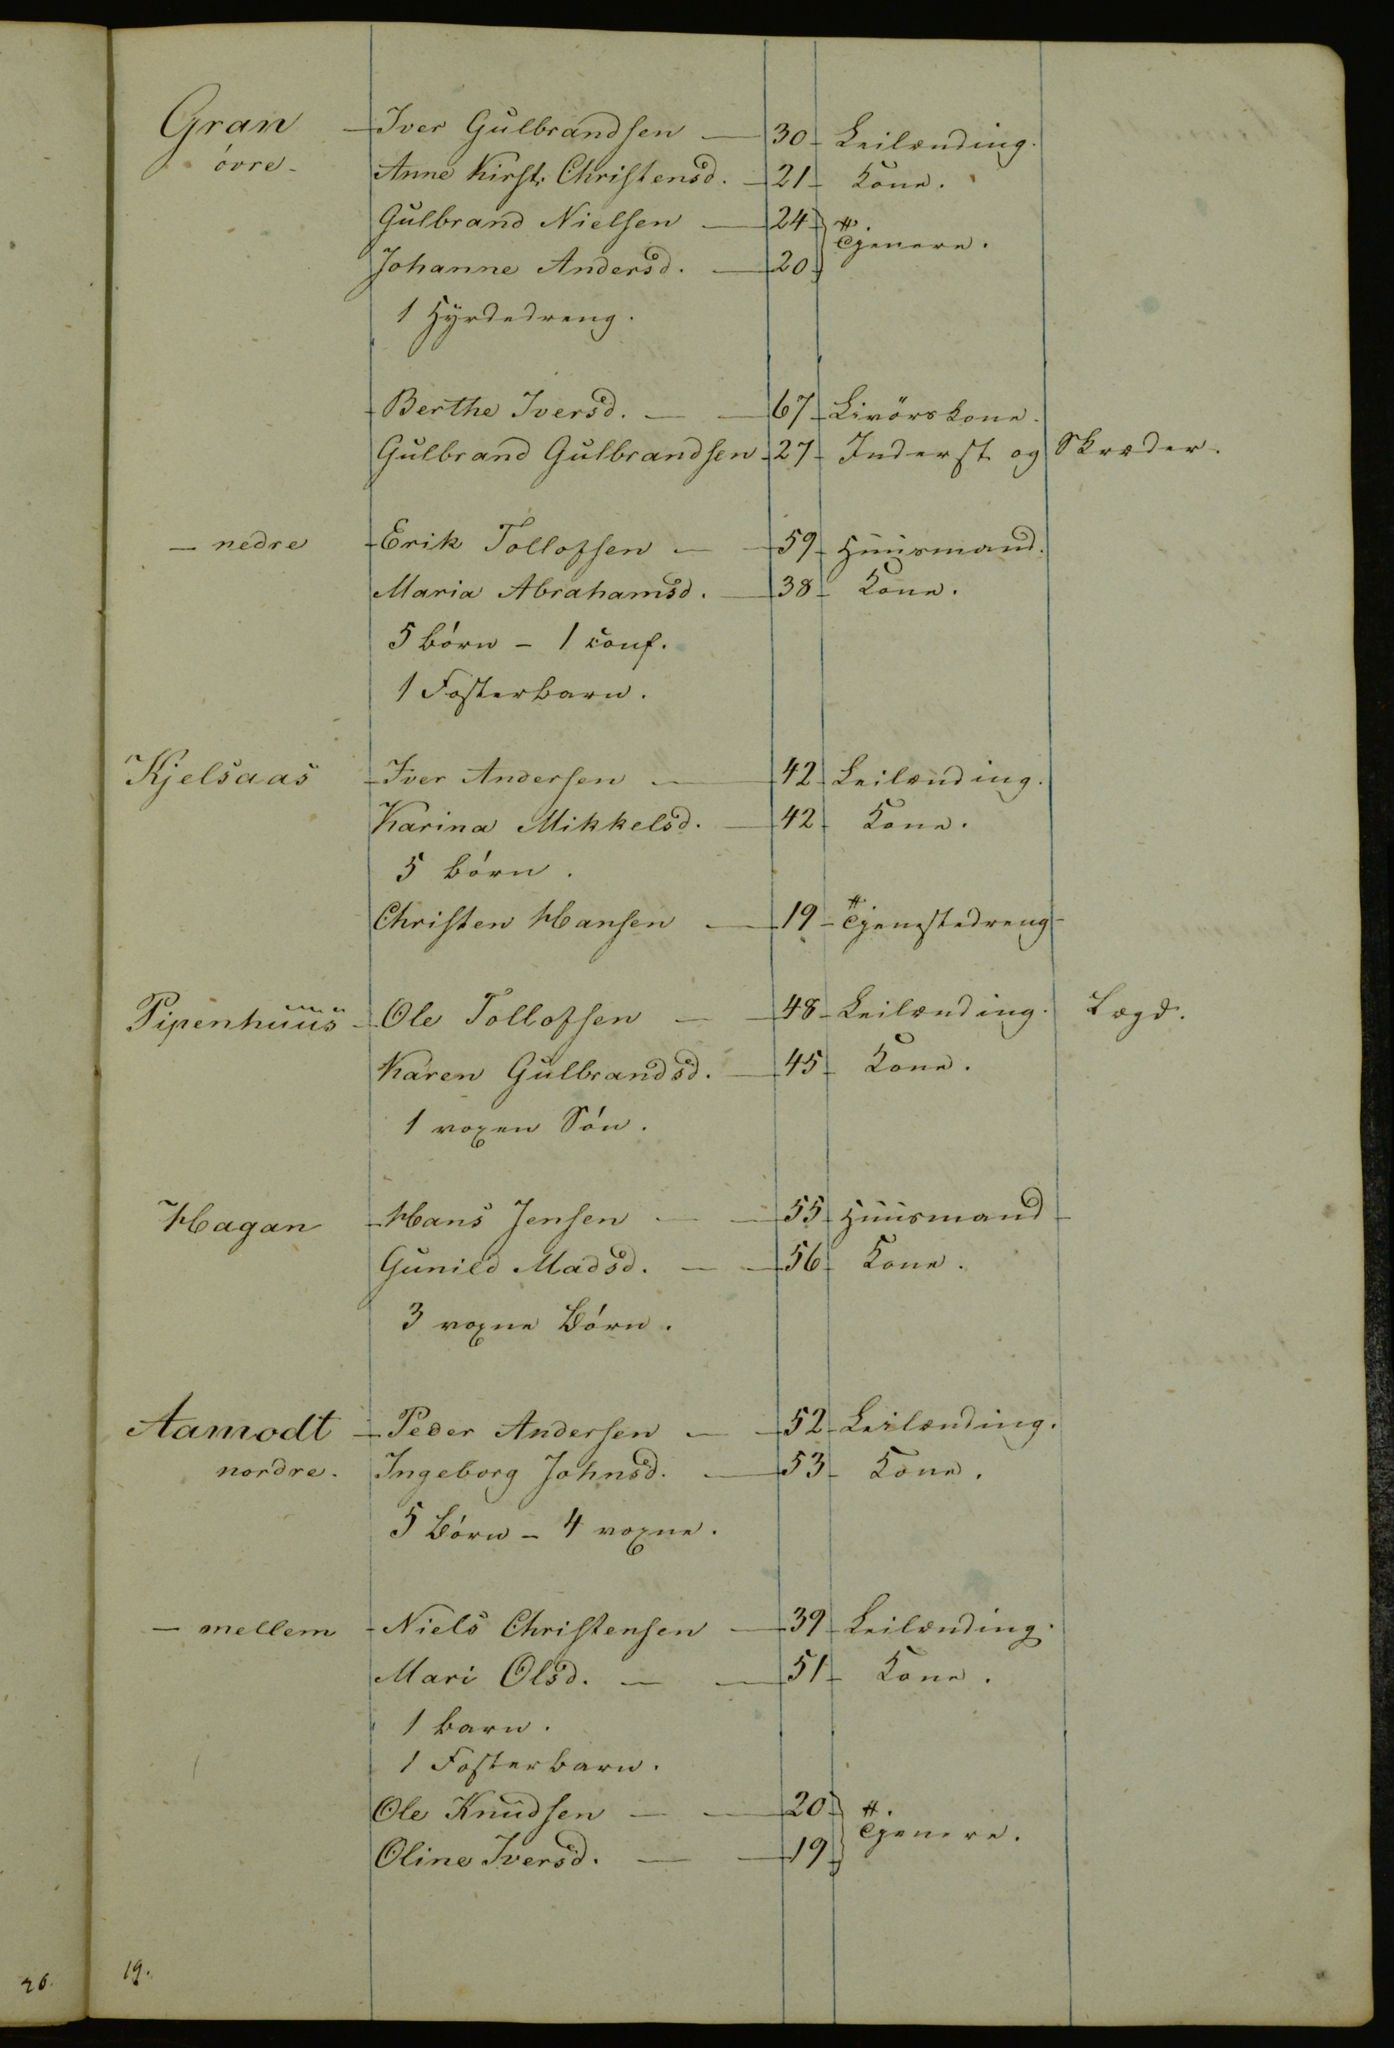 Gran — Iver Gulbrandsen — 30 — Leilænding.
övre — Anne Kirst. Christensd. — 21 — Kone.
Gulbrand Nielsen — 24
Tjenere.
Johanne Andersd. — 20
1 Hyrdedreng.
Berthe Iversd. — — 67 — Livörskone.
Gulbrand Gulbrandsen — 27 — Inderst og Skræder.
— nedre — Erik Tollofsen — — 59 — Huusmand.
Maria Abrahamsd. — 38 — Kone.
5 börn — 1 conf.
1 Fosterbarn.
Kjelsaas — Iver Andersen — 42 — Leilænding.
Karina Mikkelsd. — 42 — Kone.
5 börn.
Christen Hansen — 19 — Tjenestedreng —
Pipenhuus — Ole Tollofsen — — 48 — Leilænding. Lægd.
Karen Gulbrandsd. — 45 — Kone.
1 voxen Sön.
Hagan — Hans Jensen — — 55 — Huusmand —
Gunild Madsd. — — 56 — Kone.
3 voxne Börn.
Aamodt — Peder Andersen — — 52 — Leilænding.
nordre. Ingeborg Johnsd. — 53 — Kone.
5 Börn — 4 voxne.
— mellem — Niels Christensen — 39 — Leilænding.
Mari Olsd. — — 51 — Kone.
1 barn.
1 Fosterbarn.
Ole Knudsen — — 20
Tjenere.
Oline Iversd. — — 19
26. 19.